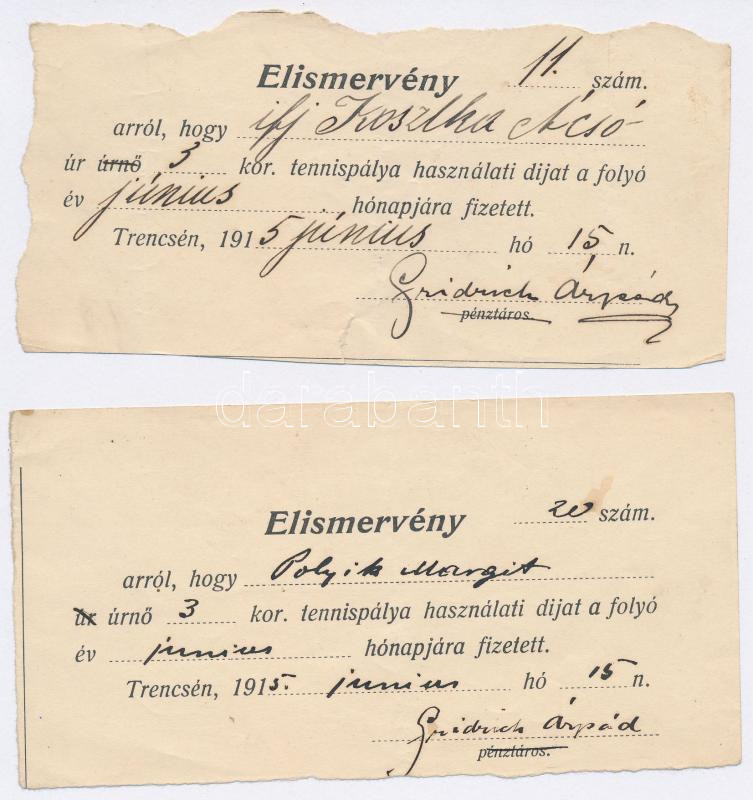 Elismervény 11. szám.
arról, hogy ifj Kosztka
úr úrnő 3 kor. tennispálya használati dijat a folyó
év június hónapjára fizetett.
Trencsén, 1915 június hó 15 n.
Gridrich Árpád
pénztáros.
darabanth
Elismervény 20 szám.
arról, hogy Polyik Margit
úr úrnő 3 kor. tennispálya használati dijat a folyó
év junius hónapjára fizetett.
Trencsén, 1915. junius hó 15 n.
Gridrich Árpád
pénztáros.